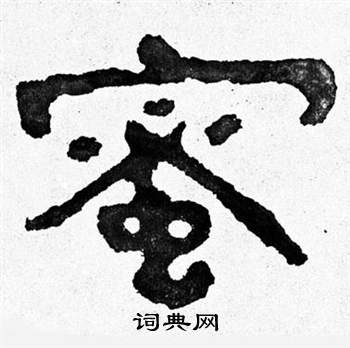 蜜
词典网